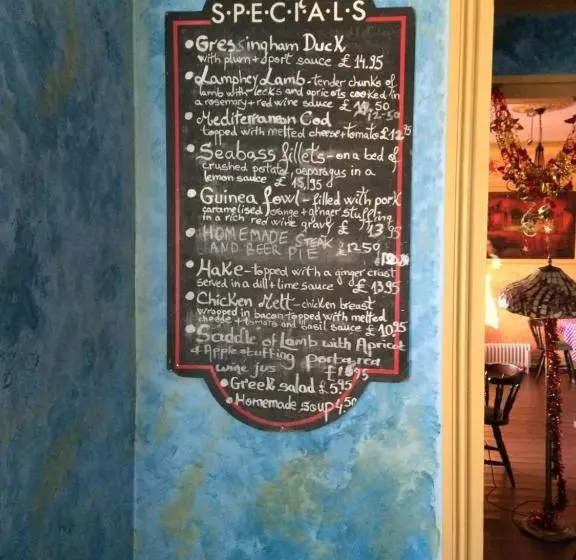 S·P·E·C·I·A·L·S
• Gressingham Duck
with plum + port sauce £ 14.95
• Lamphey Lamb - tender chunks of
lamb with leeks and apricots cooked in
a rosemary + red wine sauce £ 12.50
• Mediterranean Cod
topped with melted cheese + tomato £ 12.95
• Seabass fillets - on a bed of
crushed potato, asparagus in a
lemon sauce £ 15,95
• Guinea fowl - filled with pork
caramelised orange + ginger stuffing
in a rich red wine gravy £ 13.95
• HOMEMADE STEAK
AND BEER PIE £12.50
• Hake - topped with a ginger crust
served in a dill + lime sauce £ 13.95
• Chicken Melt - chicken breast
wrapped in bacon topped with melted
cheese + tomato and basil sauce £ 10.95
• Saddle of Lamb with Apricot
+ Apple stuffing port + red
wine jus
• Greek salad £ 5.95
• Homemade soup 4.50